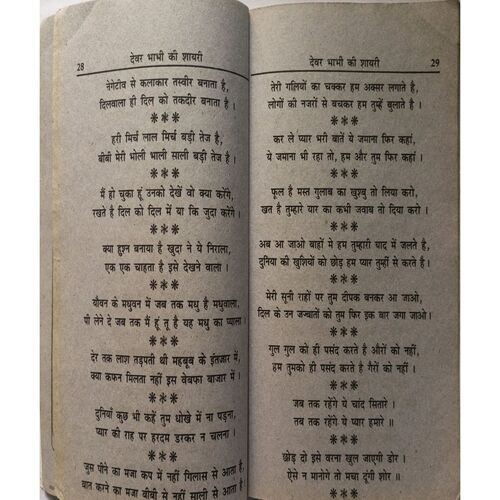 28 देवर भाभी की शायरी
नेगेटीव से कलाकार तस्वीर बनाता है,
दिलवाला ही दिल को तकदीर बनाता है ।
***
हरी मिर्च लाल मिर्च बड़ी तेज है,
बीबी मेरी भोली भाली साली बड़ी तेज है ।
***
मैं हो चुका हूं उनको देखें वो क्या करेंगे,
रखते है दिल को दिल में या कि जुदा करेंगे ।
***
क्या हुश्न बनाया है खुदा ने ये निराला,
एक एक चाहता है इसे देखने वाला ।
***
यौवन के मधुवन में जब तक मधु है मधुवाला,
पी लेने दे जब तक मैं हूं तू है यह मधु का प्याला ।
***
देर तक लाश तड़पती थी महबूब के इंतजार में,
क्या कफन मिलता नहीं इस वेबफा बाजार में ।
***
दुनियाँ कुछ भी कहें तुम धोखे में ना पड़ना,
प्यार की राह पर हरदम डरकर न चलना ।
***
जुस पीने का मजा कप में नहीं गिलास से आता है,
बात करने का मजा बीबी से नहीं साली से आता है ।
देवर भाभी की शायरी 29
तेरी गलियों का चक्कर हम अक्सर लगाते है,
लोगों की नजरों से बचकर हम तुम्हें बुलाते है ।
***
कर ले प्यार भरी बातें ये जमाना फिर कहां,
ये जमाना भी रहा तो, हम और तुम फिर कहां ।
***
फूल है मस्त गुलाब का खुश्बु तो लिया करो,
खत है तुम्हारे यार का कभी जवाब तो दिया करो ।
***
अब आ जाओ बाहों मे हम तुम्हारी याद में जलते है,
दुनिया की खुशियों को छोड़ हम प्यार तुम्हीं से करते है ।
***
मेरी सुनी राहों पर तुम दीपक बनकर आ जाओ,
दिल के उन जज्बातों को तुम फिर इक बार जगा जाओ ।
***
गुल गुल को ही पसंद करते है औरों को नहीं,
हम तुमको ही पसंद करते है गैरों को नहीं ।
***
जब तक रहेंगे ये चांद सितारे ।
तब तक रहेंगे ये प्यार हमारे ॥
***
छोड़ दो इसे वरना खुल जाएगी डोर ।
ऐसे न मानोगे तो मचा दूंगी शोर ॥